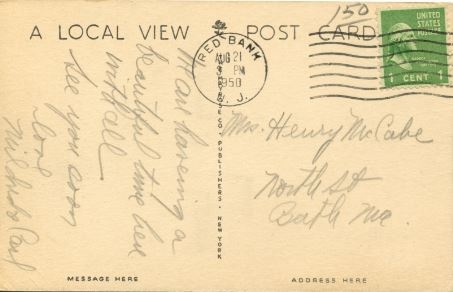 150
A LOCAL VIEW POST CARD
RED BANK
AUG 21
3 PM
1950
N. J.
UNITED
STATES
POSTAGE
1 CENT 1
Am having a
beautiful time here
with all
See you soon
love
Mildred & Carl
PUBLISHERS, NEW YORK
Mrs. Henry McCabe
North St
Bath Me.
MESSAGE HERE
ADDRESS HERE